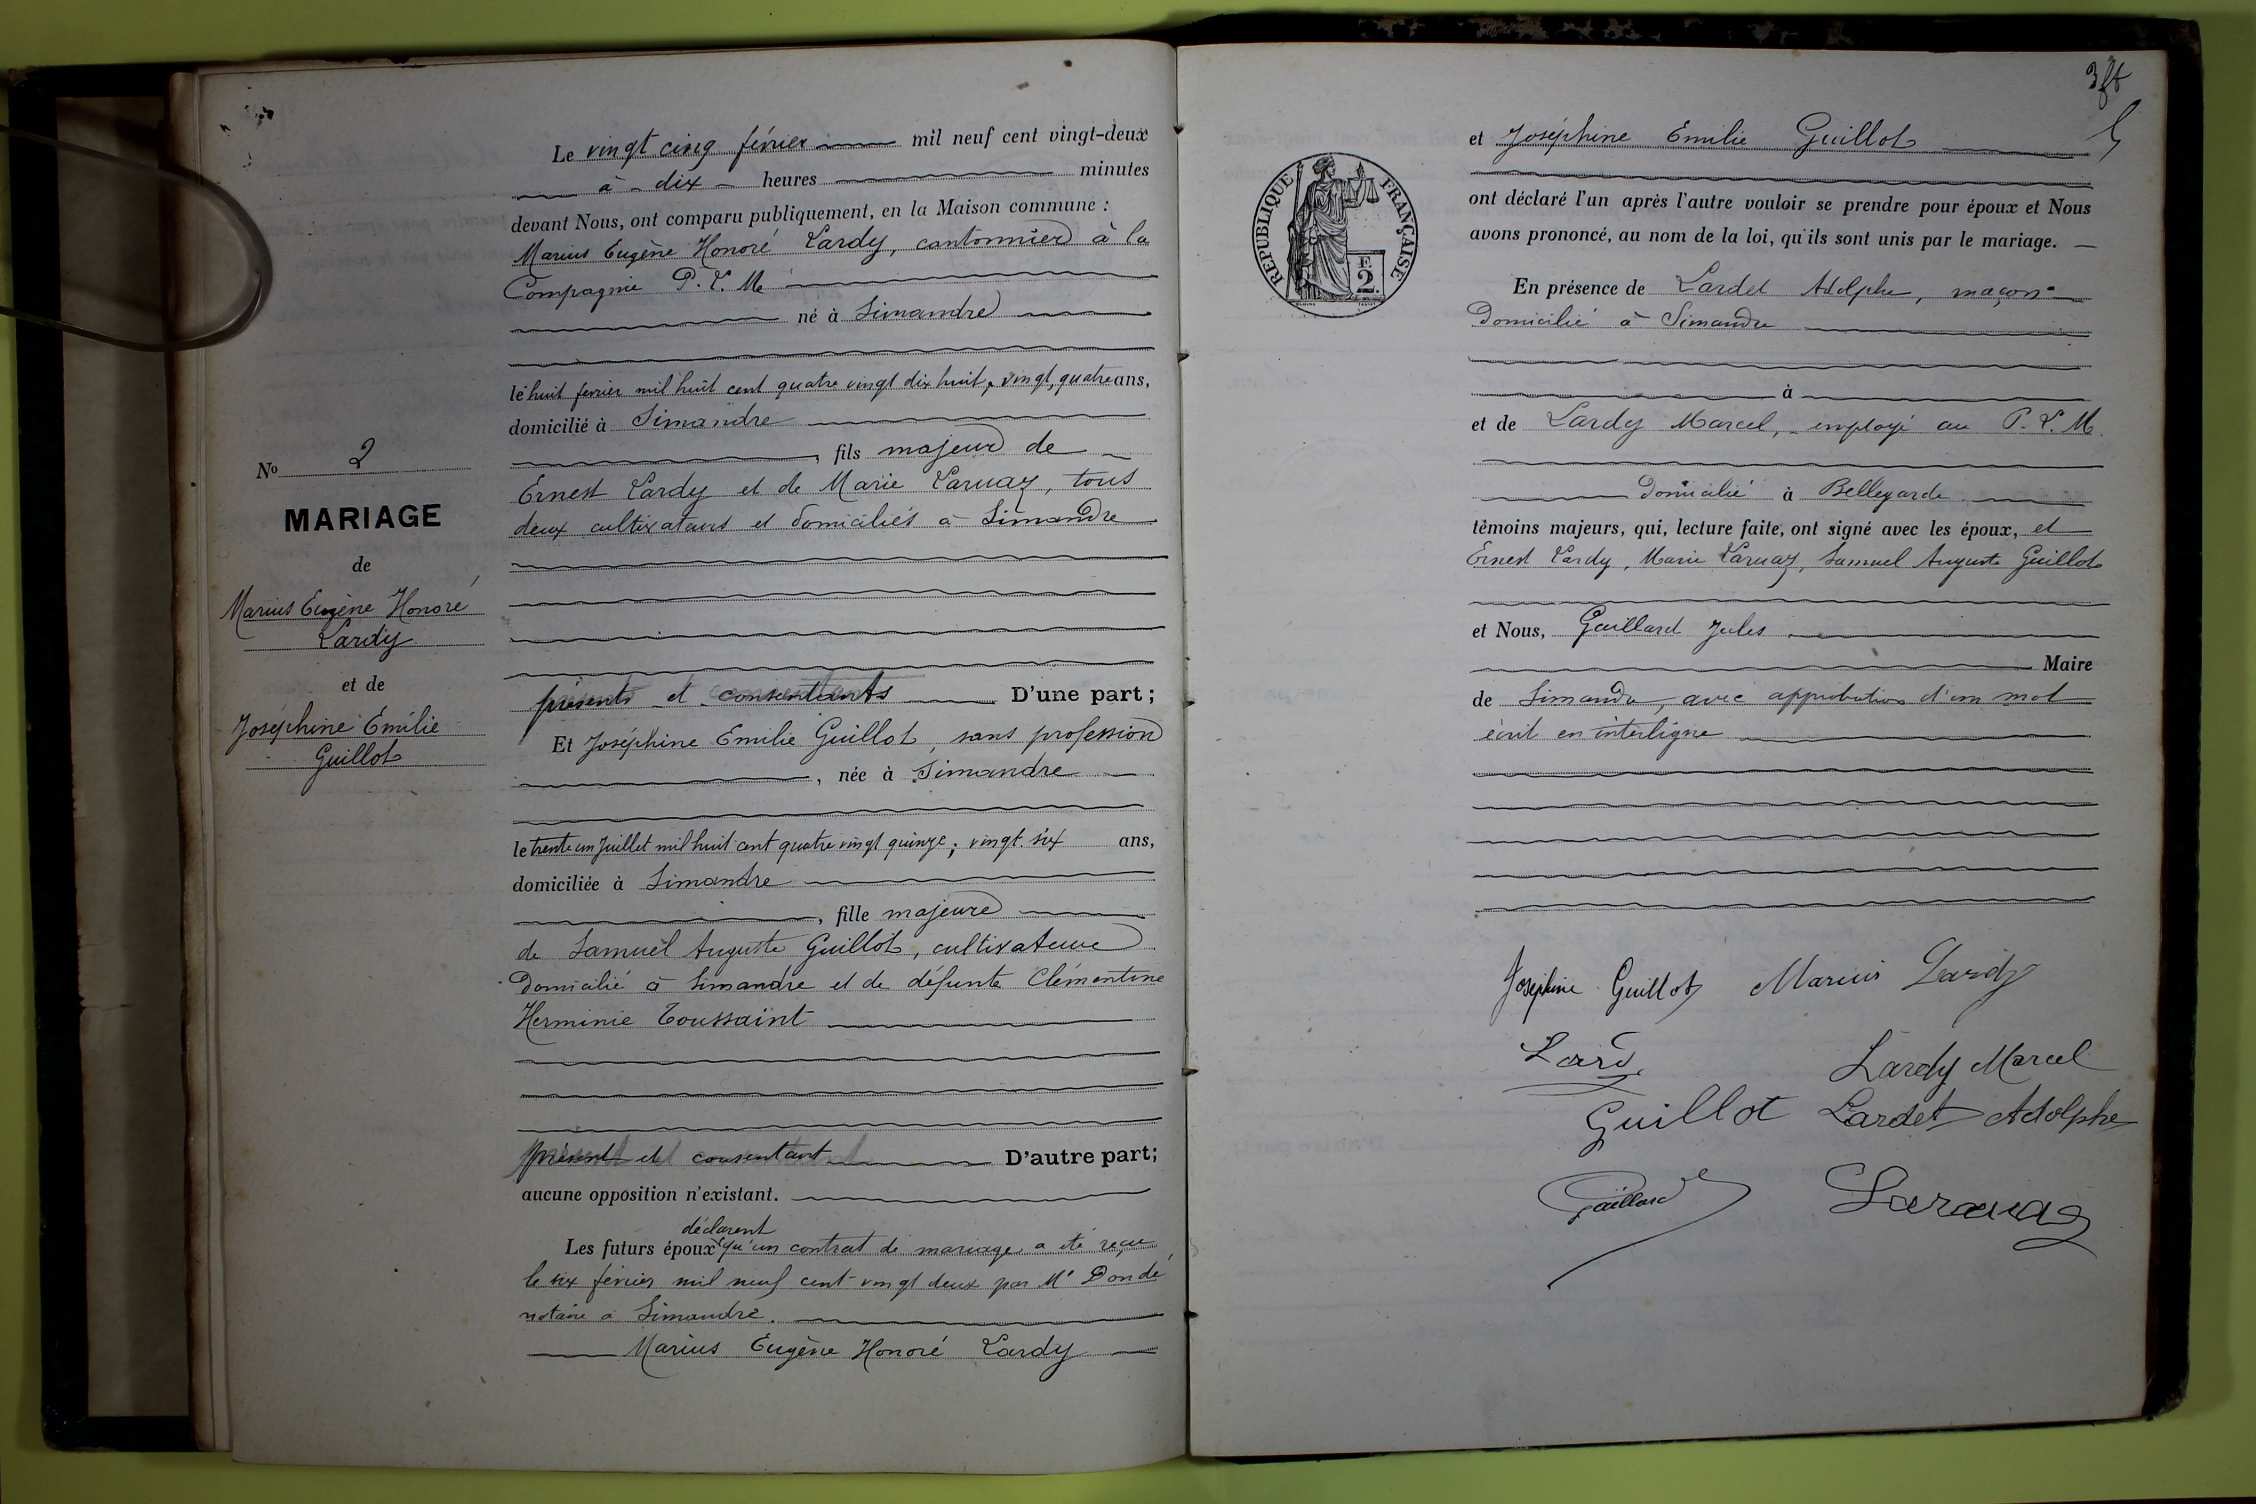 No 2
MARIAGE
de
Marius Eugène Honoré
Lardy
et de
Joséphine Emilie
Guillot
Le vingt cinq février mil neuf cent vingt-deux
à dix heures minutes
devant Nous, ont comparu publiquement, en la Maison commune :
Marius Eugène Honoré Lardy, cantonnier à la
Compagnie P. L. M.
né à Simandre
le huit fevrier mil huit cent quatre vingt dix huit, vingt quatre ans,
domicilié à Simandre
, fils majeur de
Ernest Lardy et de Marie Laruaz, tous
deux cultivateurs et domiciliés à Simandre
présents et consentants D'une part ;
Et Joséphine Emilie Guillot, sans profession
, née à Simandre
le trente un juillet mil huit cent quatre vingt quinze ; vingt six ans,
domiciliée à Simandre
, fille majeure
de Samuel Auguste Guillot, cultivateur
Domicilié à Simandre et de défunte Clémentine
Herminie Toussaint
présent et consentant D'autre part ;
aucune opposition n'existant.
déclarent
Les futurs époux qu'un contrat de mariage a été reçu
le six février mil neuf cent vingt deux par Me Dondé
notaire à Simandre.
Marius Eugène Honoré Lardy
et Joséphine Emilie Guillot
RÉPUBLIQUE FRANÇAISE
F.
2.
ont déclaré l'un après l'autre vouloir se prendre pour époux et Nous
avons prononcé, au nom de la loi, qu'ils sont unis par le mariage.
En présence de Lardet Adolphe, maçon
Domicilié à Simandre
à
et de Lardy Marcel, employé au P. L. M.
Domicilié à Bellegarde
témoins majeurs, qui, lecture faite, ont signé avec les époux, et
Ernest Lardy, Marie Laruaz, Samuel Auguste Guillot
et Nous, Gaillard Jules
Maire
de Simandre, avec approbation d'un mot
écrit en interligne
Joséphine Guillot Marius Lardy
Lardy Marcel
Guillot Lardet Adolphe
Gaillard